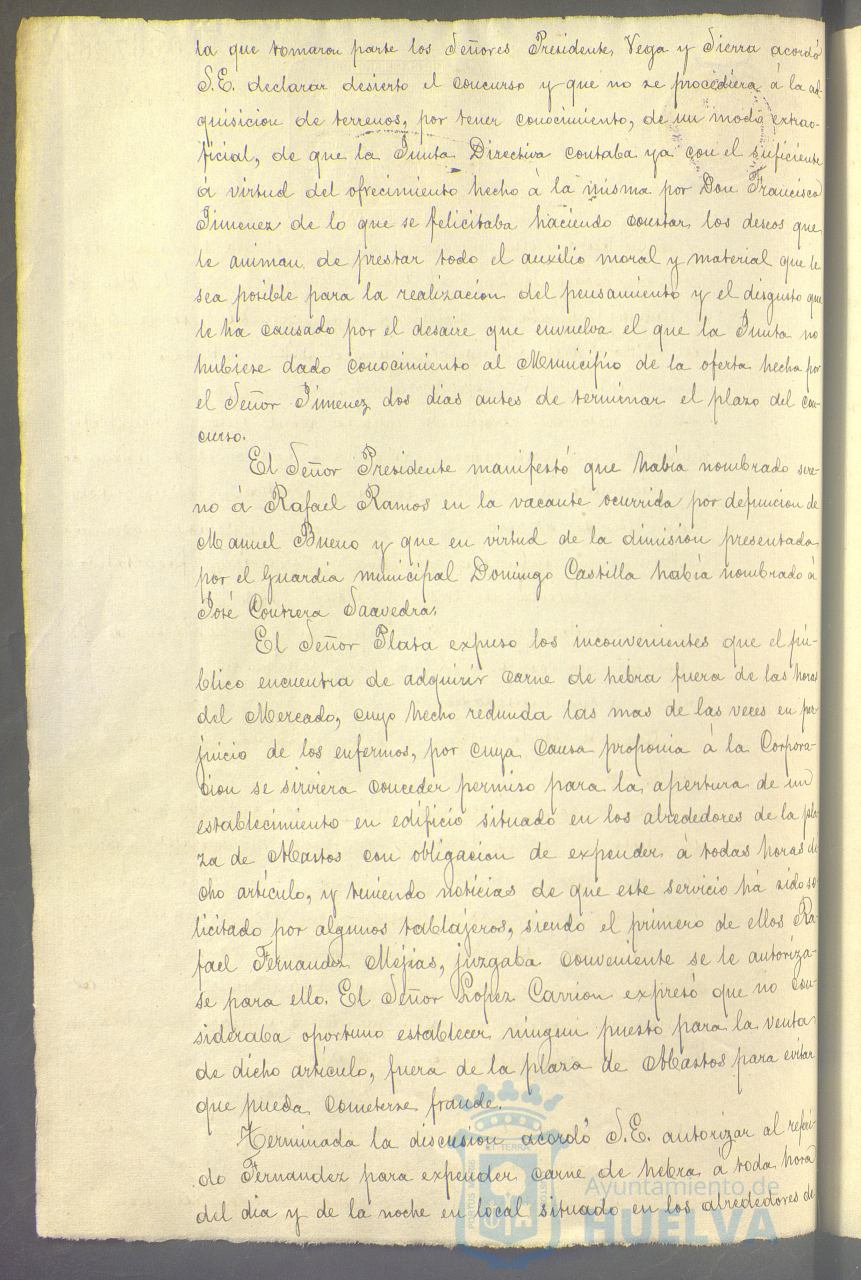 la que tomaron parte los Señores Presidente, Vega y Sierra acordó
S.E. declarar desierto el concurso y que no se procediera á la ad-
quisicion de terrenos, por tener conocimiento, de un modo extrao-
ficial, de que la Junta Directiva contaba ya con el suficiente
á virtud del ofrecimiento hecho á la misma por Don Francisco
Jimenez de lo que se felicitaba haciendo constar los deseos que
le animan de prestar todo el auxilio moral y material que le
sea posible para la realizacion del pensamiento y el disgusto que
le ha causado por el desaire que envuelva el que la Junta no
hubiese dado conocimiento al Municipio de la oferta hecha por
el Señor Jimenez dos dias antes de terminar el plazo del con-
curso.
El Señor Presidente manifestó que había nombrado sere-
no á Rafael Ramos en la vacante ocurrida por defuncion de
Manuel Bueno y que en virtud de la dimision presentada
por el Guardia municipal Domingo Castilla había nombrado á
José Contrera Saavedra.
El Señor Plata expuso los inconvenientes que el pú-
blico encuentra de adquirir carne de hebra fuera de las horas
del Mercado, cuyo hecho redunda las mas de las veces en per-
juicio de los enfermos, por cuya causa proponia á la Corpora-
cion se sirviera conceder permiso para la apertura de un
establecimiento en edificio situado en los alrededores de la pla-
za de Abastos con obligacion de expender á todas horas di-
cho artículo, y teniendo noticias de que este servicio há sido so-
licitado por algunos tablajeros, siendo el primero de ellos Ra-
fael Fernandez Mejias, juzgaba conveniente se le autoriza-
se para ello. El Señor Lopez Carrion expresó que no con-
sideraba oportuno establecer ningun puesto para la venta
de dicho artículo, fuera de la plaza de Abastos para evitar
que pueda cometerse fraude.
Terminada la discusion acordó S.E. autorizar al referi-
do Fernandez para expender carne de hebra á toda hora
del dia y de la noche en local situado en los alrededores de
Ayuntamiento de
HUELVA